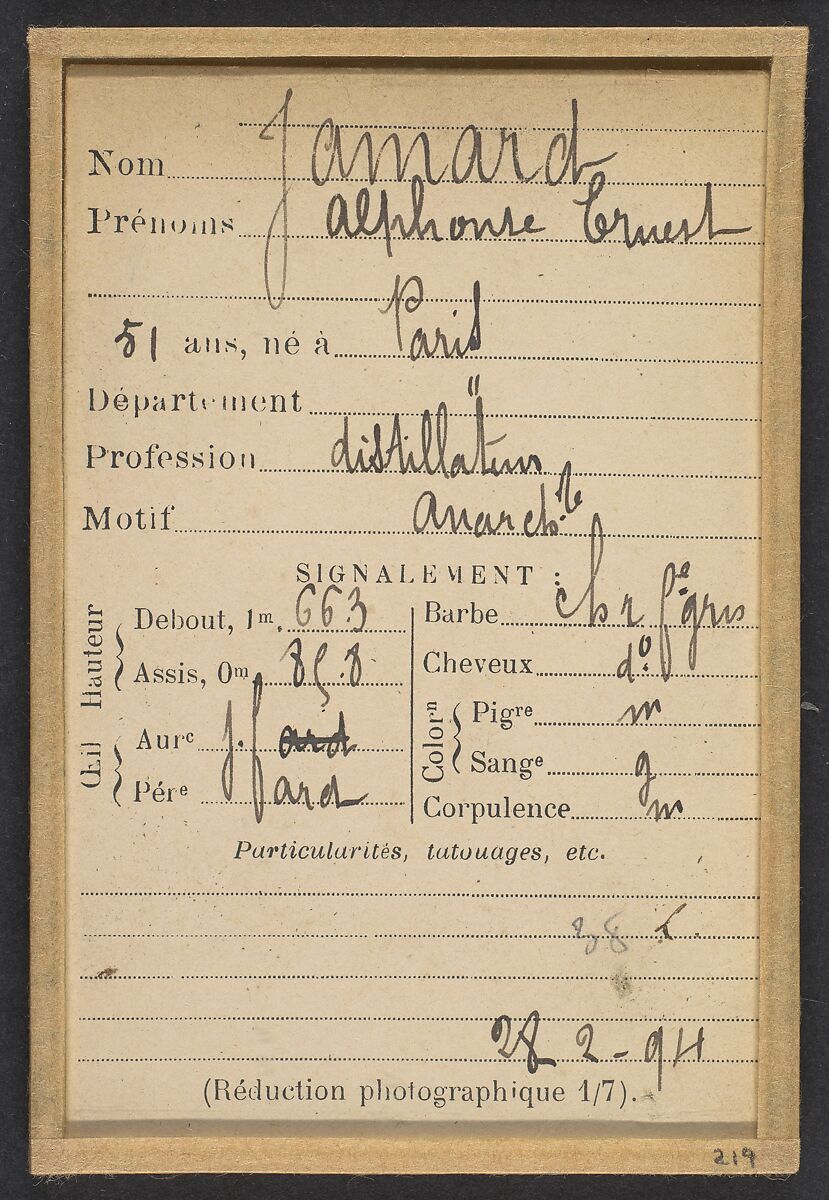 Nom Jamard
Prénoms Alphonse Ernest
51 ans, né à Paris
Département "
Profession distillateur
Motif Anarch.te
SIGNALEMENT :
Hauteur
Debout, 1m. 66.3
Assis, 0m 8 .8
Œil
Aurc j.f ard
Pére f ard
Barbe ch r fe gris
Cheveux do
Colorn
Pigre m
Sange g
Corpulence m
Particularités, tatouages, etc.
38
28 2-94
(Réduction photographique 1/7).
219